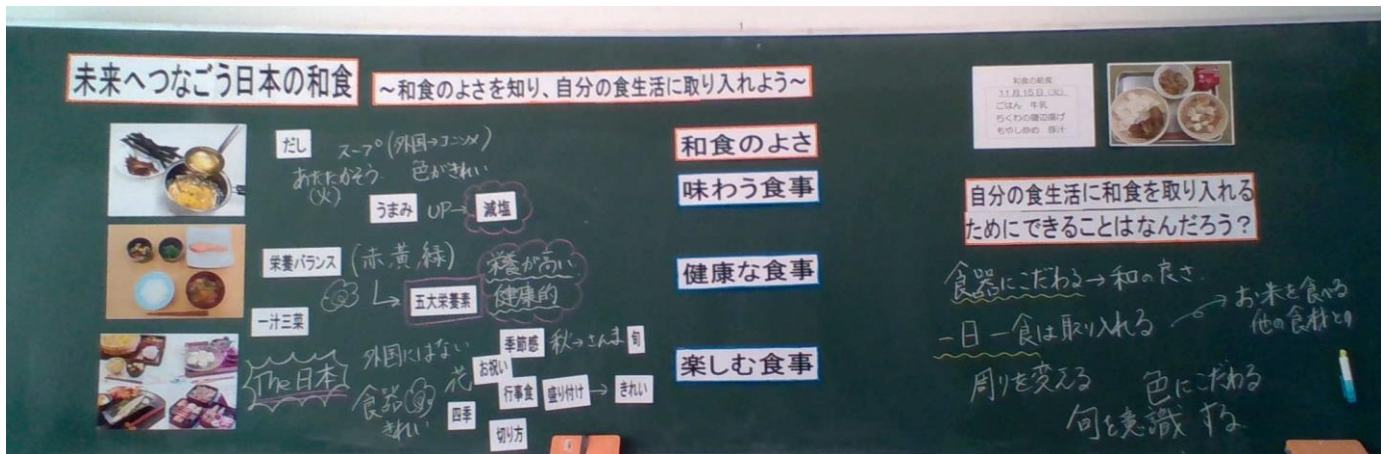 未来へつなごう日本の和食
～和食のよさを知り、自分の食生活に取り入れよう～
だし
スープ(外国→コンソメ)
あたたかそう
(火)
色がきれい
うまみ UP→ 減塩
栄養バランス (赤,黄,緑)
→ 五大栄養素
栄養が高い
健康的
一汁三菜
The日本
外国にはない
食器
きれい
花
四季
季節感 秋→さんま 旬
お祝い
行事食 盛り付け → きれい
切り方
和食のよさ
味わう食事
健康な食事
楽しむ食事
和食の給食
11月15日(火)
ごはん 牛乳
ちくわの磯辺揚げ
もやし炒め 豚汁
自分の食生活に和食を取り入れる
ためにできることはなんだろう？
食器にこだわる→和の良さ
一日一食は取り入れる → お米を食べる
他の食材との
周りを変える 色にこだわる
旬を意識する